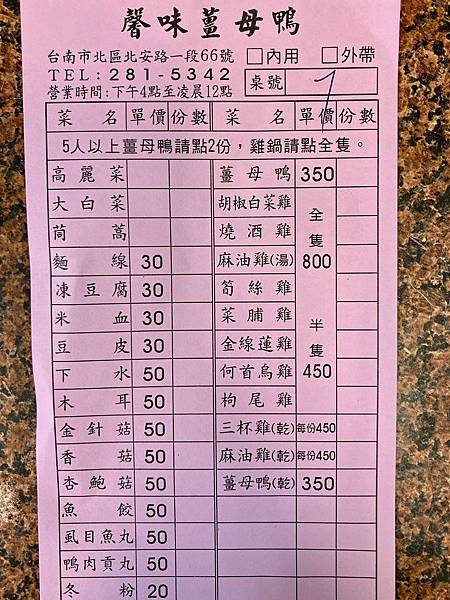 馨味薑母鴨
台南市北區北安路一段66號 □內用 □外帶
TEL:281-5342
營業時間:下午4點至凌晨12點
桌號 1
菜名 單價 份數 菜名 單價 份數
5人以上薑母鴨請點2份,雞鍋請點全隻。
高麗菜 薑母鴨 350
大白菜 胡椒白菜雞
茼蒿 燒酒雞 全隻
麵線 30 麻油雞(湯) 800
凍豆腐 30 筍絲雞
米血 30 菜脯雞
豆皮 30 金線蓮雞 半隻
下水 50 何首烏雞 450
木耳 50 枸尾雞
金針菇 50 三杯雞(乾) 每份450
香菇 50 麻油雞(乾) 每份450
杏鮑菇 50 薑母鴨(乾) 350
魚餃 50
虱目魚丸 50
鴨肉貢丸 50
冬粉 20